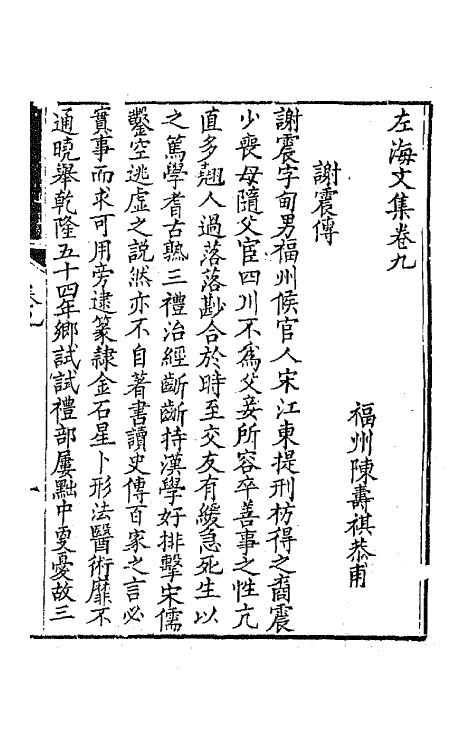 左海文集卷九
福州陳壽祺恭甫
謝震傳
謝震字甸男福州候官人宋江東提刑枋得之裔震
少喪母隨父宦四川不爲父妾所容卒善事之性亢
直多翹人過落落尠合於時至交友有緩急死生以
之篤學耆古熟三禮治經齗齗持漢學好排擊宋儒
鑿空逃虛之說然亦不自著書讀史傳百家之言必
實事而求可用旁逮篆隸金石星卜形法醫術靡不
通曉舉乾隆五十四年鄉試試禮部屢黜中更憂故三
卷九
一